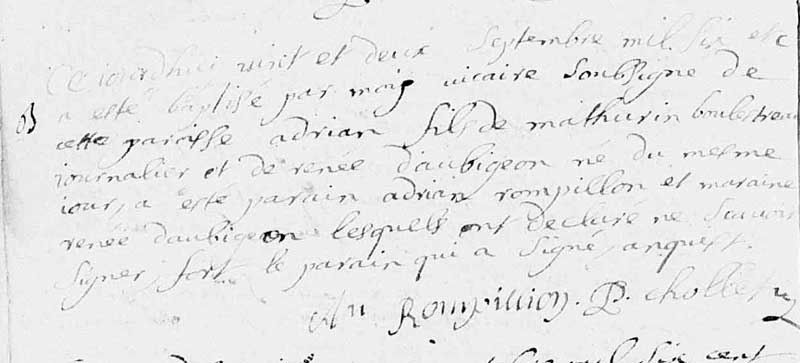 Ce iourdhui vint et deux Septembre mil six etc
B a esté baptisé par moy vicaire Soubsigne de
cette paroisse adrian fils de mathurin boulestreau
journalier et de renee d'aubigeon né du mesme
iour, a esté parain adrian rompillon et maraine
renée daubigeon lesquels ont declaré ne Scavoir
Signer, fort le parain qui a Signé, anquist.
Rompillion. P. Chollet